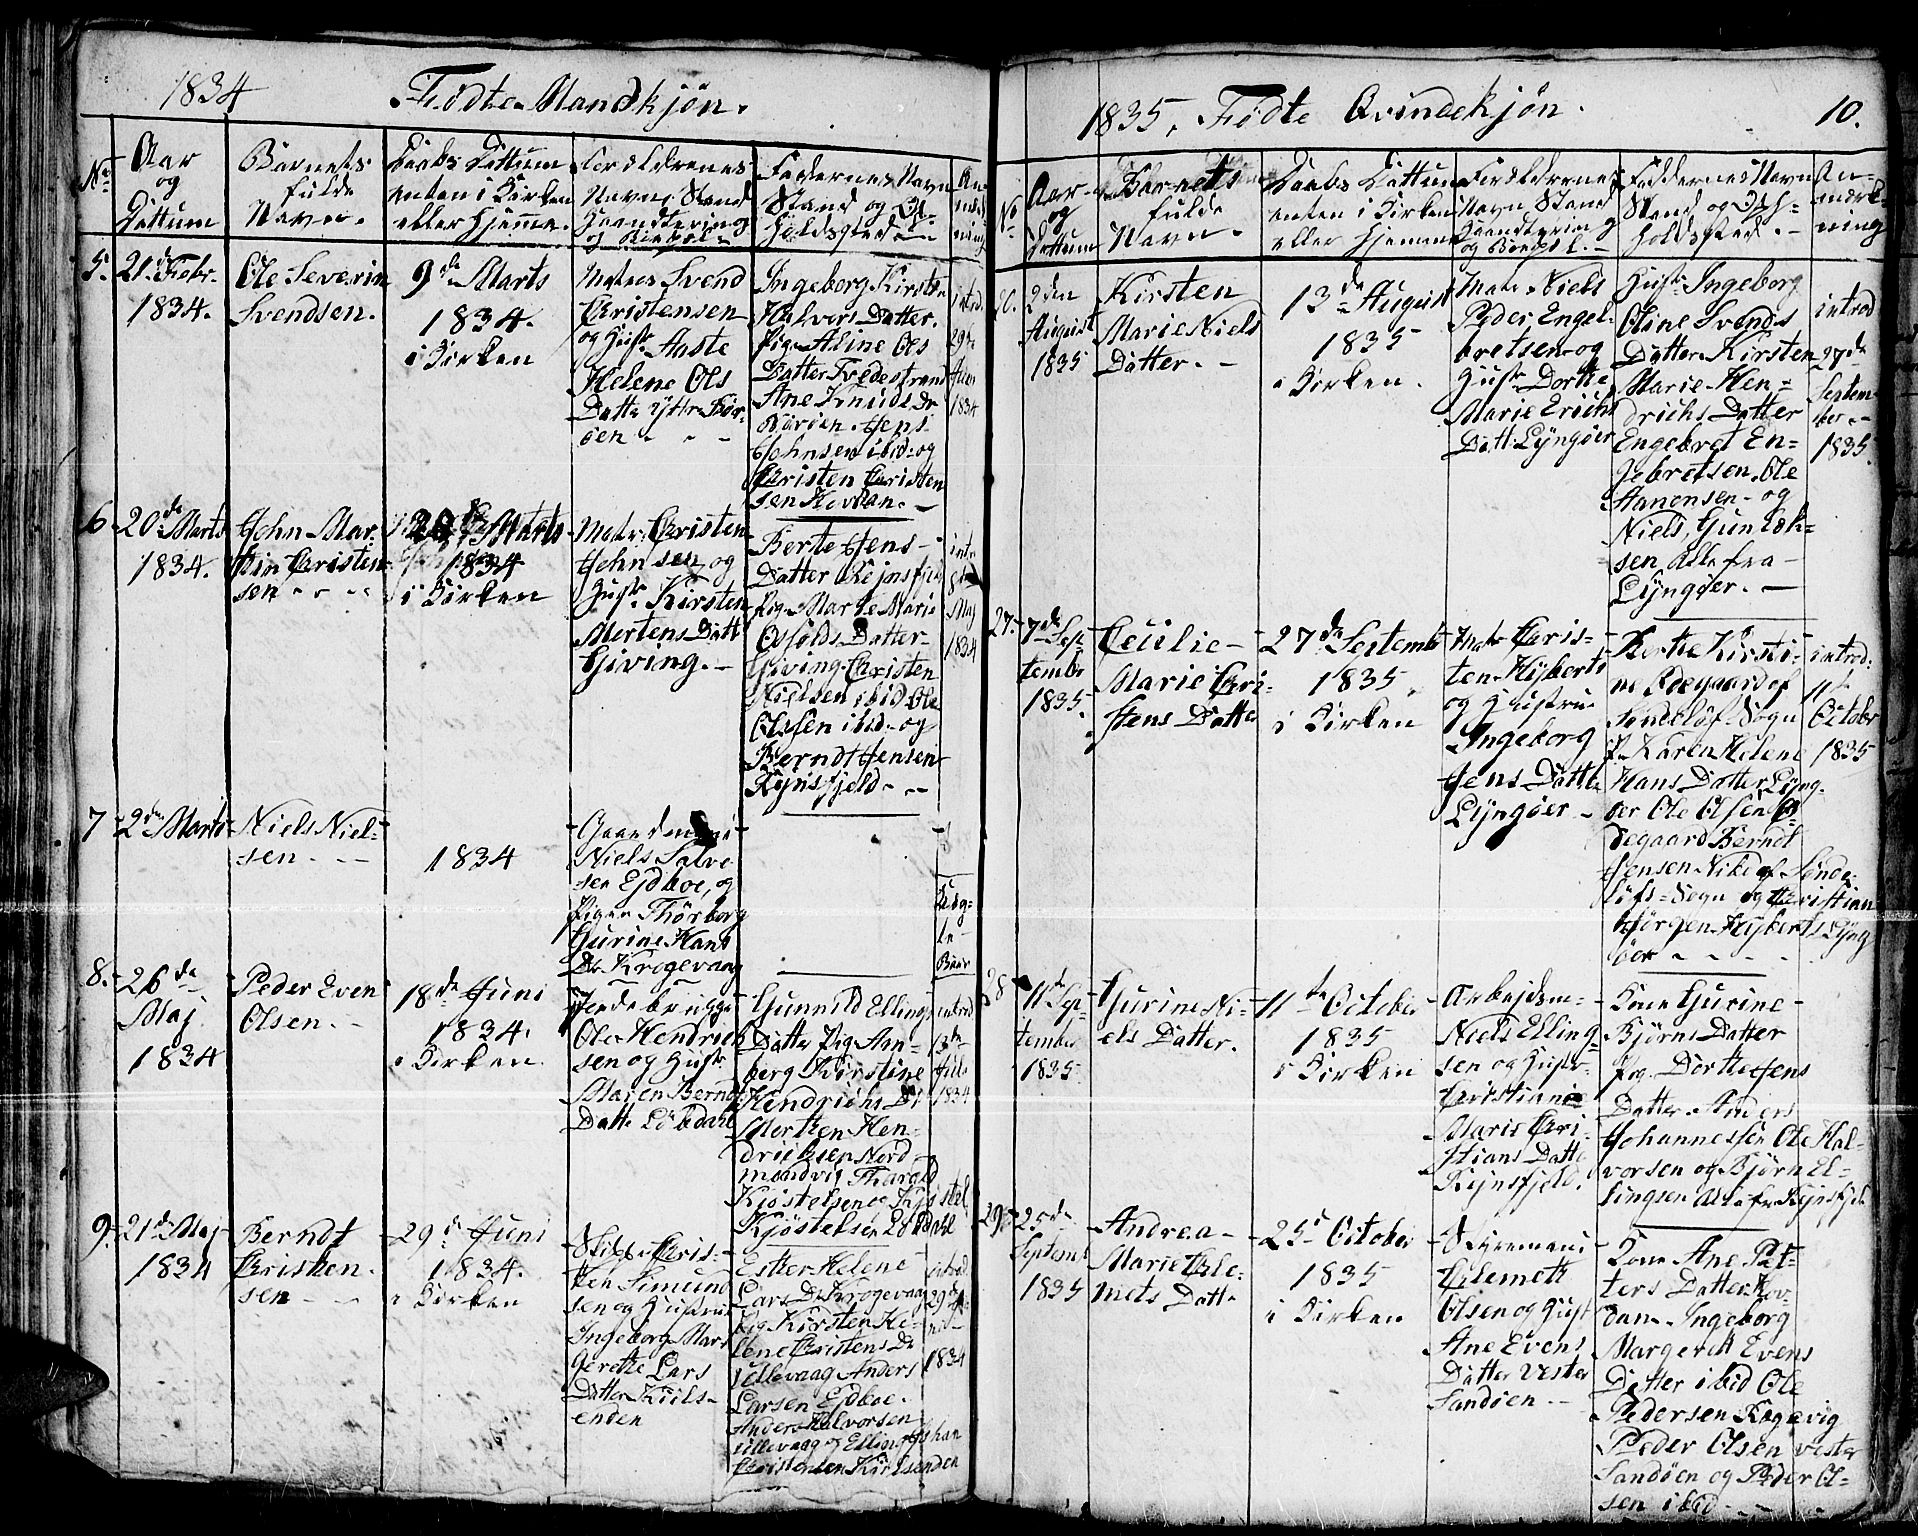 1834 Fødte Mandkjøn.
No
Aar
og
Dattum
Barnets
fulde
Navn.
Daabs Dattum
enten i Kirken
eller Hjemme.
Forældrenes
Navn, Stand
Haandtering
og Boepæl
Faddernes Navn
Stand og Op-
holdssted
An-
mærk-
ning
5.
21. Febr.
1834.
Ole Severin
Svendsen.
9de Marts
1834.
i Kirken
Matros Svend
Christensen
og Hust.
Helene Ols
Datter
Ingeborg Kirsten
Halvors Datter.
Pige Aline Ols
Datter Fredestrand
Ane Knuds Dr
Jens
Johnsen ibid og
Christen Christen
sen
introd.
29de
Juni
1834
6.
20de Marts
1834.
John Mar-
tin Christen-
sen
Marts
1834
i Kirken
Matr. Christen
Johnsen og
Hust. Kirsten
Mortens Datt
Giving.
Berte Jens
Datter Rejnsfjeld
Pig. Marte Marie
Osolds Datter
Giving. Christen
Nielsen ibid Ole
Olssen ibid og
Berndt Jensen
Rejnsfjeld
intr
Maj
1834
7
2den Marts
Niels Niel-
sen
1834
Gaardmand
Niels Salve
sen Ejdboe, og
Pigen Thorborg
Gurine Hans
Dr. Krogevaag
8.
26de
Maj
1834
Peder Even
Olsen.
18de Juni
1834.
i Kirken
Ole Hendrich
sen og Hustr
Maren Berndt
Datter
Gunnild Ellings
Datter Pig. An-
berg Kirstine
Hendrichs Dr
Morten Hen-
drichsen Nord
Kjøstelsen og Kjøstel
Kjøstelsen
introd
13de
Juli
1834
9.
21de Maj
1834
Berndt
Christen-
sen
29de Juni
1834.
i Kirken
Skipp. Chris-
ten Simund
sen og Hustrue
Ingeborg Mar
grethe Lars
Datter Kiils-
enden
Ester Helene
Lars Dr. Krogevaag
Pig. Kirsten He-
lene Christens Dr
Lillevaag Anders
Larsen Ejdboe.
Anders Halvorsen
Lillevaag og Elling Johan
Christensen Kiilsenden
introd.
29de
1834
1835. Fødte Qvindekjøn. 10.
No
Aar
og
Dattum
Barnets
fulde
Navn.
Daabs Dattum
enten i Kirken
eller Hjemme
Forældrenes
Navn Stand
Haandtering
og Boepæl.
Faddernes Navn
Stand og Op-
holdssted.
An-
mærk-
ning
2den
August
1835
Kirsten
Marie Niels
Datter.
13de August
1835
i Kirken.
Matr. Niels
Peder Engel-
bretsen og
Hust. Dorthe
Marie Erichs
Datt. Lyngøer
Hust. Ingeborg
Oline Svends
Datter Kirsten
Marie Hen-
drichs Datter
Engebret En-
gebretsen, Ole
Aanonsen og
Niels Gunlek-
sen Alle fra
Lyngøer.
introd
27de
Septem-
ber
1835.
27.
7de Sep-
tember
1835.
Cecilie
Marie Chri-
stens Datter
27de September
1835.
i Kirken
Matr. Chris-
ten Hyberts
og Hustrue
Ingeborg
Jens Datter
Lyngøer
Kirsti-
ne
Søndeløf Sogn
P. Karen Helene
Hans Datter Lyng-
øer Ole Olsen O-
degaard Berndt
Jensen af Sønde-
løfs Sogn og Christian
Jørgen Hyberts Lyng
øer
introd:
11te
October
1835
28
11te Sep-
tember
1835.
Gurine Ni-
els Datter.
11te October
1835
i Kirken
Arbejdsm.
Niels Elling-
sen og Hustr.
Christiane
Marie Chri-
stians Datter
Rejnsfjeld.
Kone Gurine
Bjørns Datter
Pig. Dorthe Jens
Datter. Anders
Johannessen Ole Hal-
vorsen og Bjørn El-
lingsen Alle fr. Rejnsfjeld
29.
25de
Septemb.
1835
Andrea
Marie Cle-
mets Datter
25de October
1835
i Kirken
Styrmand
Clemett
Olsen og Hust
Ane Evens
Datter Vester
Sandøen
Kone Ane Pet-
ters Datter
Ingeborg
Margerit Evens
Datter ibid Ole
Pedersen
Peder Olsen vester
Sandøen og Peder Ol-
sen ibid